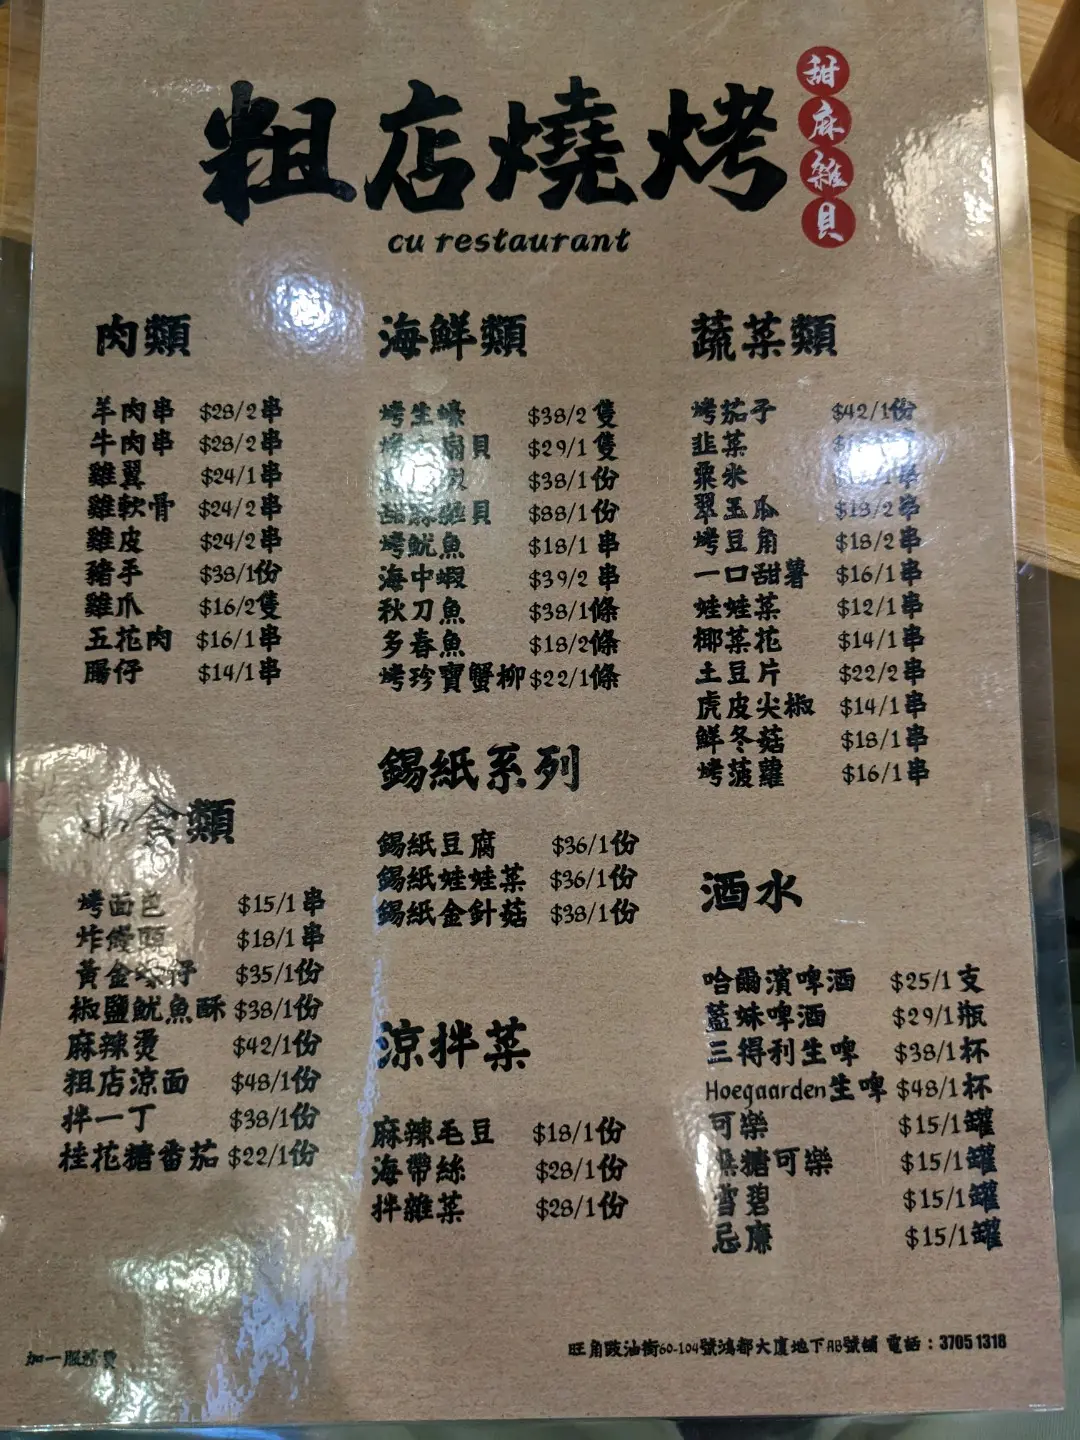 粗店燒烤
甜麻雜貝
cu restaurant
肉類
羊肉串 $28/2串
牛肉串 $28/2串
雞翼 $24/1串
雞軟骨 $24/2串
雞皮 $24/2串
豬手 $38/1份
雞爪 $16/2隻
五花肉 $16/1串
腸仔 $14/1串
小食類
烤面包 $15/1串
炸饅頭 $18/1串
黃金 仔 $35/1份
椒鹽魷魚酥 $38/1份
麻辣燙 $42/1份
粗店涼面 $48/1份
拌一丁 $38/1份
桂花糖番茄 $22/1份
海鮮類
烤生蠔 $38/2隻
烤 扇貝 $29/1隻
$38/1份
甜麻雜貝 $88/1份
烤魷魚 $18/1串
海中蝦 $39/2串
秋刀魚 $38/1條
多春魚 $18/2條
烤珍寶蟹柳 $22/1條
錫紙系列
錫紙豆腐 $36/1份
錫紙娃娃菜 $36/1份
錫紙金針菇 $38/1份
涼拌菜
麻辣毛豆 $18/1份
海帶絲 $28/1份
拌雜菜 $28/1份
蔬菜類
烤茄子 $42/1份
韭菜
粟米
翠玉瓜 $18/2串
烤豆角 $18/2串
一口甜薯 $16/1串
娃娃菜 $12/1串
椰菜花 $14/1串
土豆片 $22/2串
虎皮尖椒 $14/1串
鮮冬菇 $18/1串
烤菠蘿 $16/1串
酒水
哈爾濱啤酒 $25/1支
藍妹啤酒 $29/1瓶
三得利生啤 $38/1杯
Hoegaarden生啤 $48/1杯
可樂 $15/1罐
無糖可樂 $15/1罐
雪碧 $15/1罐
忌廉 $15/1罐
加一服務費
旺角豉油街60-104號鴻都大廈地下AB號舖 電話：3705 1318